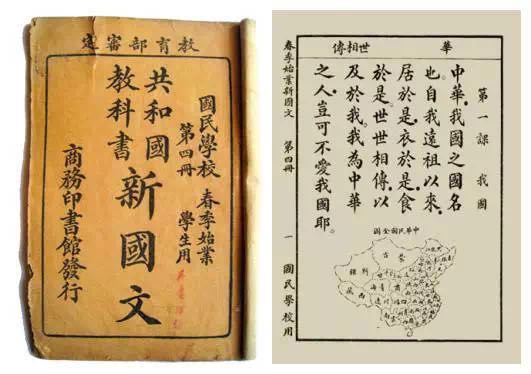 教育部審定
國民學校 春季始業
第四冊 學生用
共和國
教科書
新國文
商務印書館發行
華 世相傳
第一課 我國
中華。我國之國名
也。自我遠祖以來。
居於是。衣於是。食
於是。世世相傳。以
及於我。我為中華
之人。豈可不愛我國耶。
中華民國全圖
蒙古
新疆
青海
西藏
春季始業新國文 第四冊 一 國民學校用